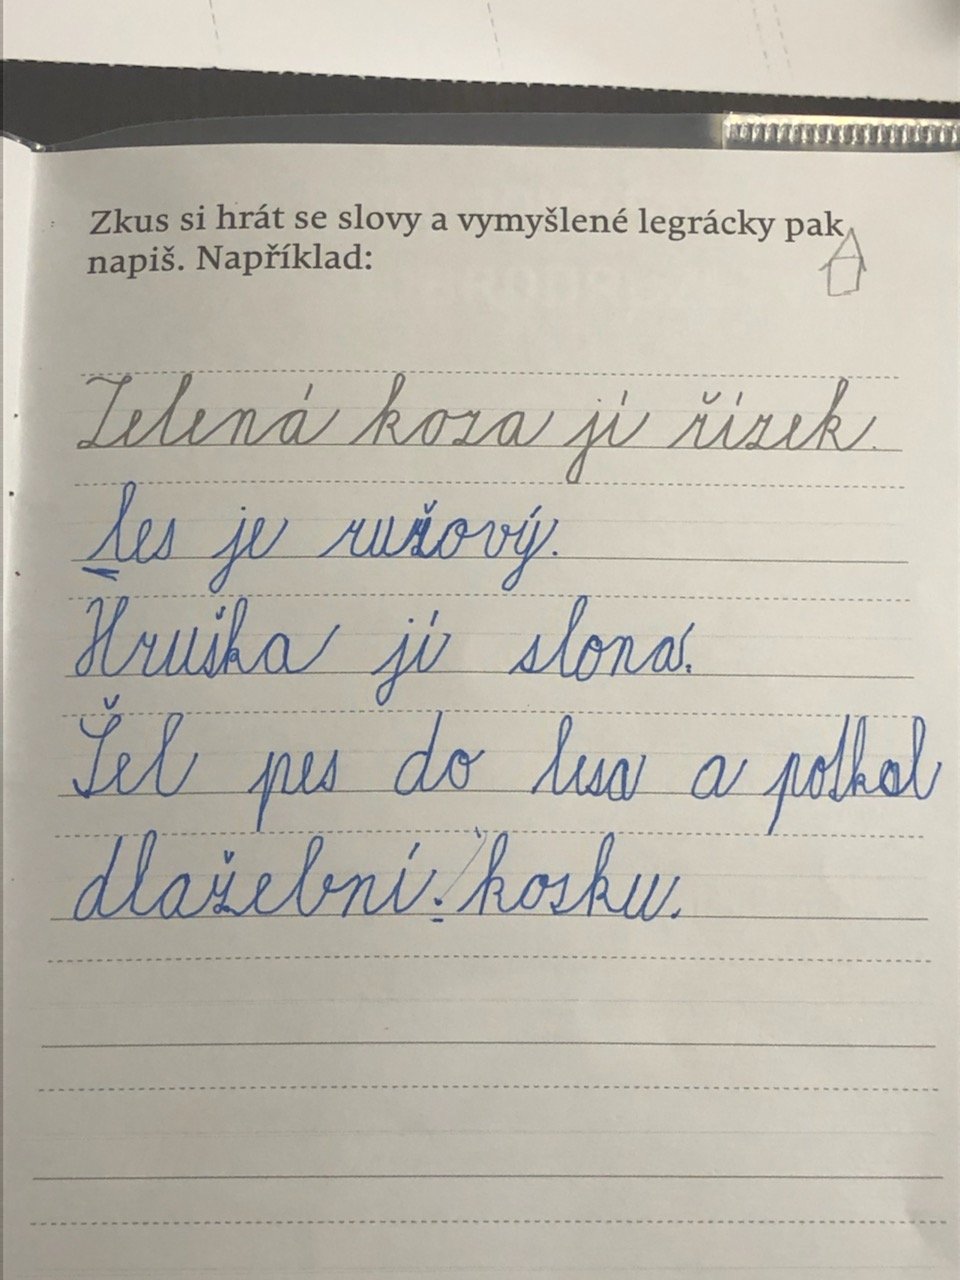 Zkus si hrát se slovy a vymyšlené legrácky pak
napiš. Například:
Zelená koza jí řízek.
les je ružový.
Hruška jí slona.
Šel pes do lesa a potkal
dlažební kosku.